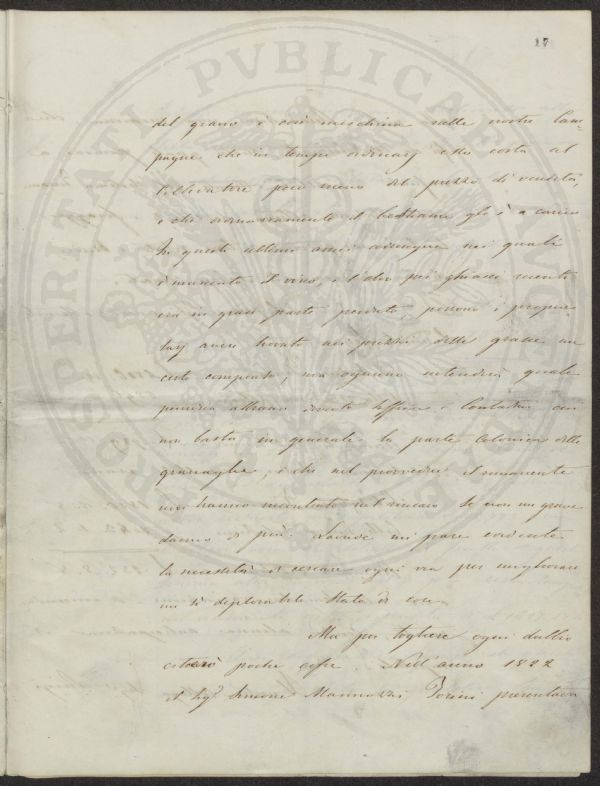 17
del grano è così meschina nelle nostre Cam-
pagne che in tempi ordinarj esso costa al
Coltivatore poco meno del prezzo di vendita,
e che ordinariamente il bestiame gli è a carico
In questi ultimi anni adunque nei quali
è mancato il vino, e l'olio pei ghiacci recenti
era in gran parte perduto, possono i proprie-
tarj avere trovato nei prezzi delle grasce un
certo compenso, ma ognuno intenderà quale
penuria abbiano dovuto soffrire i Contadini cui
non basta in generale la parte Colonica delle
granaglie, e che nel provvedere il rimanente
non hanno incontrato nel rincaro se non un grave
danno di più. Laonde mi pare evidente
la necessità di cercare ogni via per migliorare
un sì deplorabile stato di cose.
Ma per togliere ogni dubbio
citerò poche cose. Nell'anno 1822
il Sig.r Simone Mannozzi Torini presentava
PROSPERITATI PVBLICAE AVGENDAE